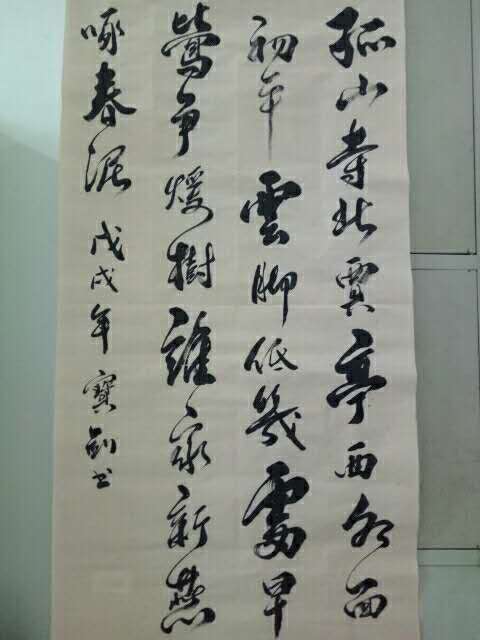 孤山寺北賈亭西水面
初平雲脚低幾處早
鶯争煖樹誰家新燕
啄春泥 戊戌年 寶劍书